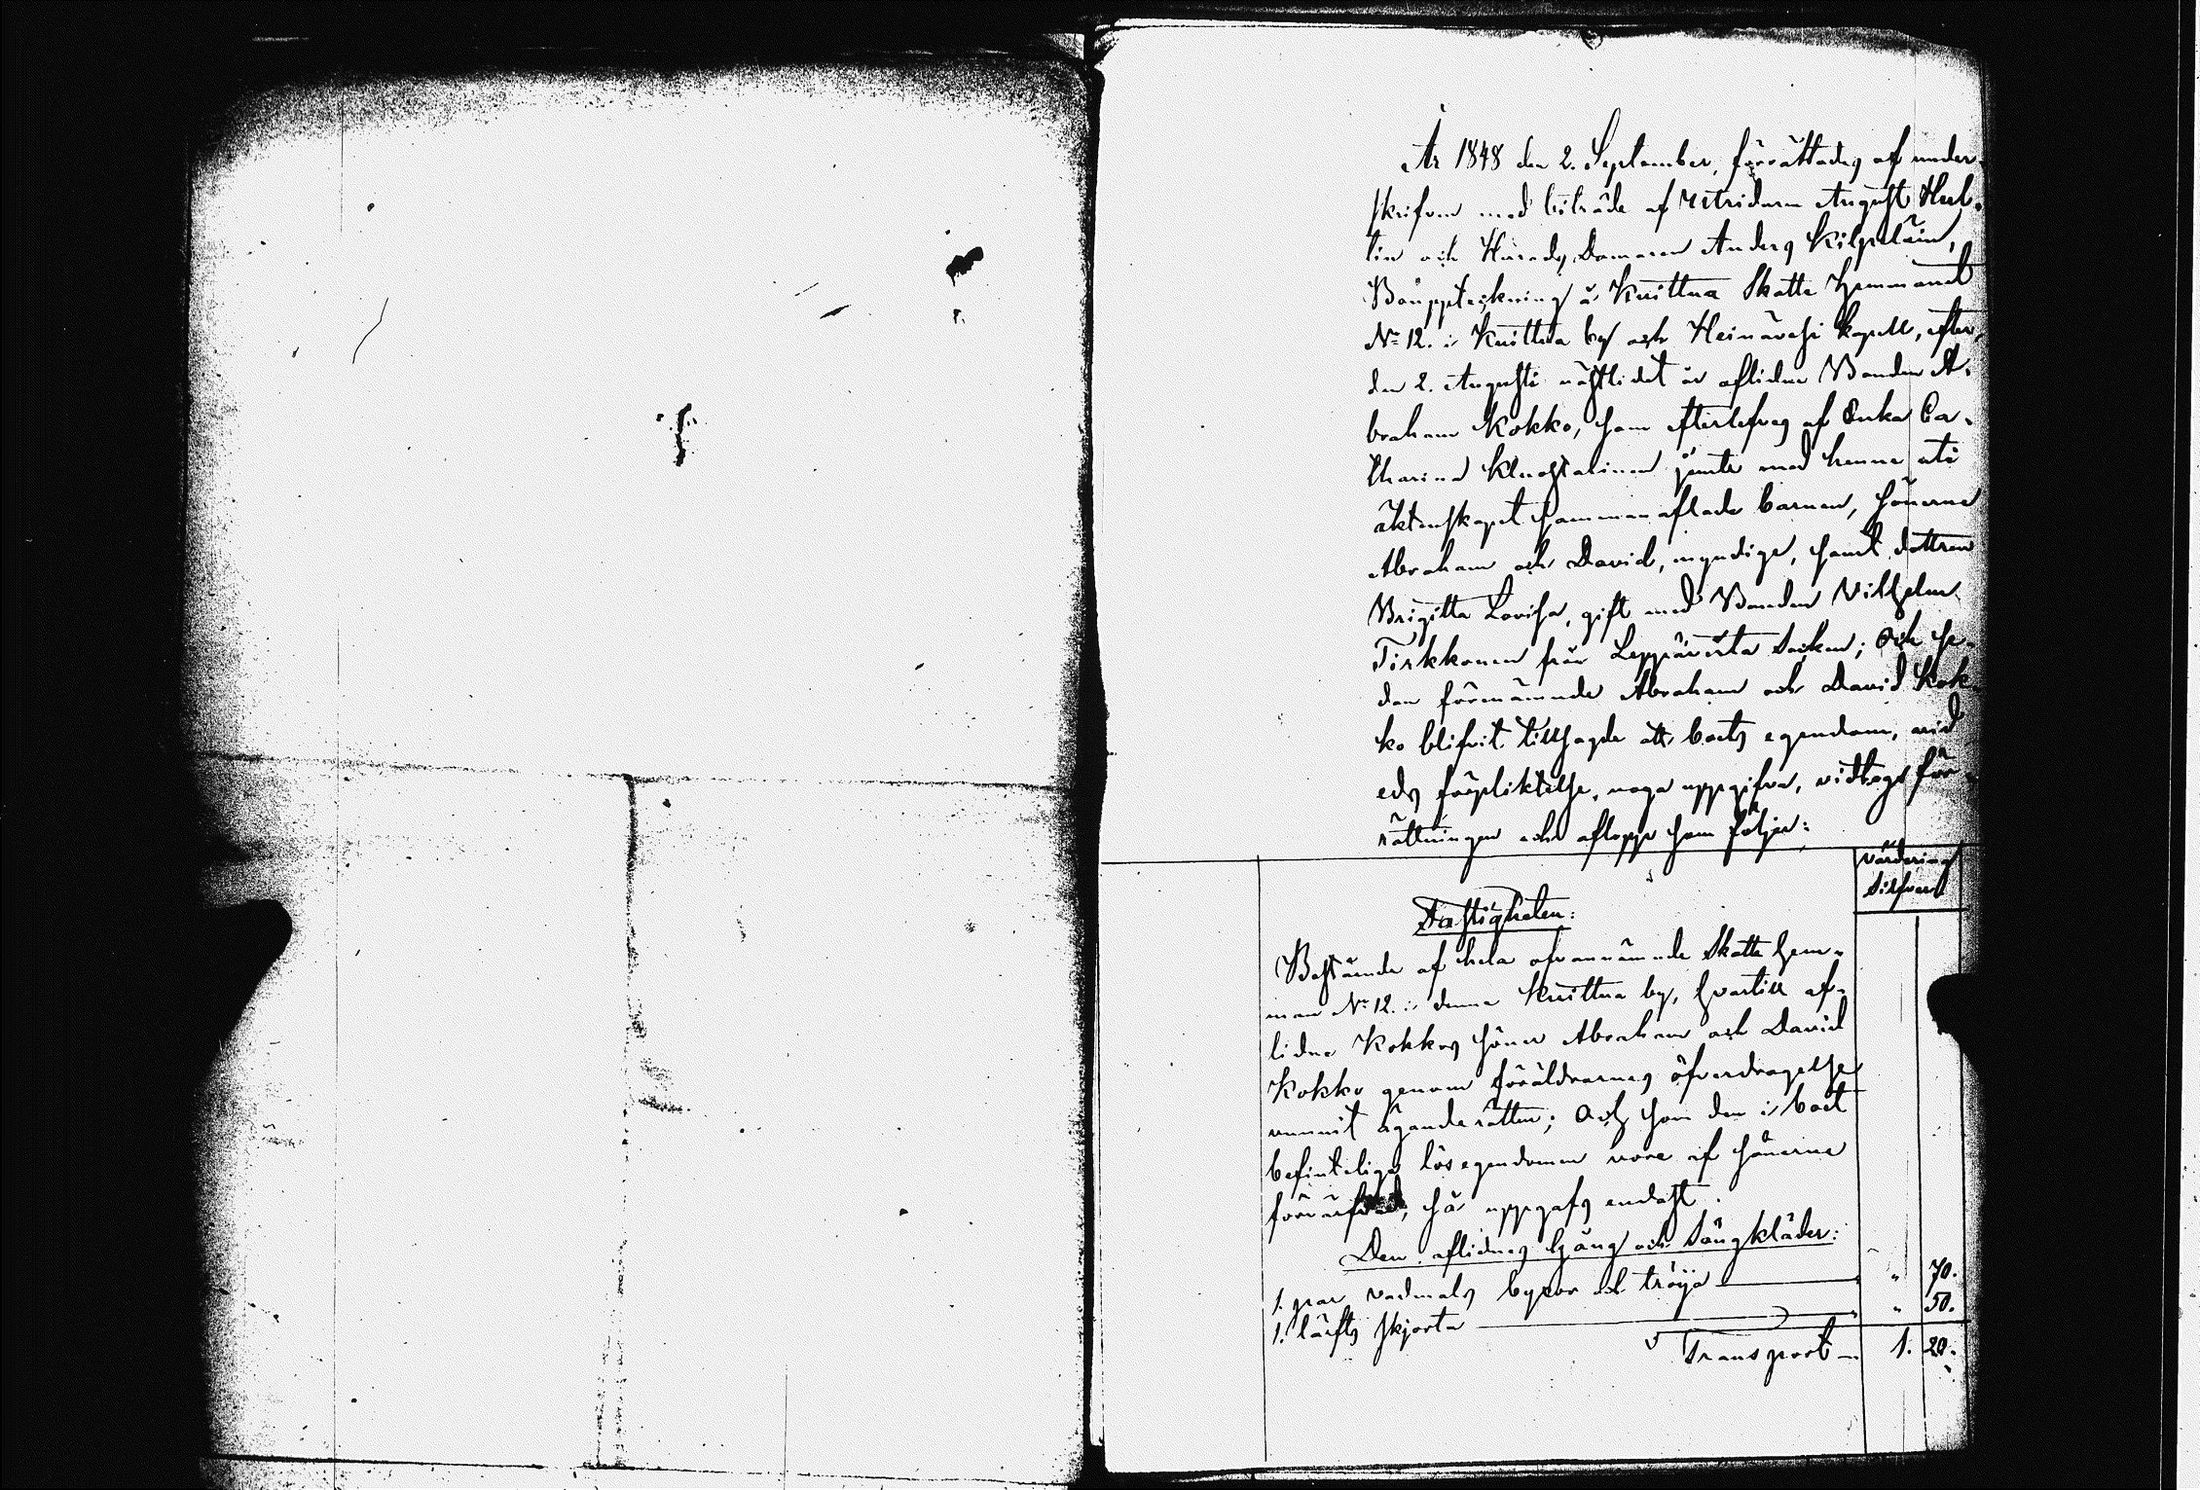 År 1848 den 2. September, förrättades af under-
skrifven med biträde af Utridaren August Hul-
tin och Härads Domaren Anders Kilpeläin,
Bouppteckning å Kuittua Skatte Hemmanet
No 12. i Kuittua by och Heinävesi kapell, efter
den 2. Augusti nästlidet år aflidne Bonden A-
braham Kokko, som efterlefves af Enka Ca-
tharina jemte med henne uti
äktenskapet sammanaflade barnen, sönerne
Abraham och David, myndige, samt dottren
Brigitta Lovisa, gift med Bonden Vilhelm
Tirkkonen från Leppävirta Socken; Och se-
dan förenämnde Abraham och David Kok-
ko blifvit tillsagde att boets egendom, vid
eds förpliktelse, noga uppgifva, vidtogs för-
rättningen och aflopp som följer:
Värdering
Silfver
Fastigheten:
Bestående af hela ofvannämnde Skatte hem-
man No 12. i denna Kuittua by, hvartill af-
lidne Kokkos söner Abraham och David
Kokko genom föräldrarnes öfverdragelse
vunnit äganderätten; Och som den i boet
befinteliga lösegendomen vore af sönerne
så uppgafs endast.
Den aflidnes Gång och Sängkläder:
1. par vadmals byxor och tröja " 70.
1. lärfts skjorta " 50.
Transport 1. 20.